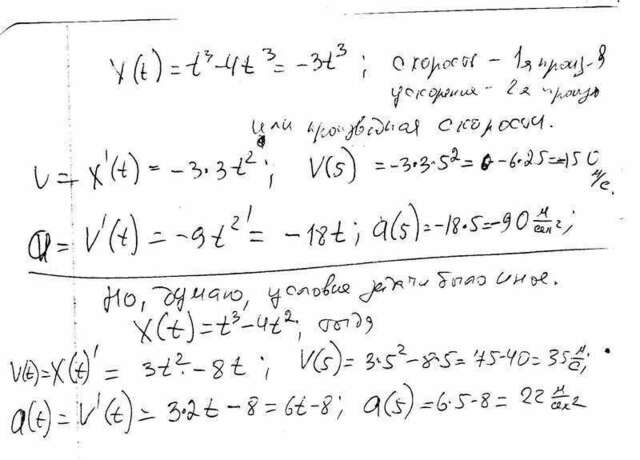 X(t) = t³-4t³ = -3t³ ; скорость - 1я произ-я
ускорение - 2я произв
или производная скорости.
V = X'(t) = -3·3t² ; V(5) = -3·3·5² = -6·25 = -150 м/с.
a = V'(t) = -9t²' = -18t ; a(5) = -18·5 = -90 м/сек² ;
Но, думаю, условие задачи было иное.
X(t) = t³-4t², тогда
V(t) = X(t)' = 3t² - 8t ; V(5) = 3·5²-8·5 = 75-40 = 35 м/с ;
a(t) = V'(t) = 3·2t - 8 = 6t-8 ; a(5) = 6·5-8 = 22 м/сек²